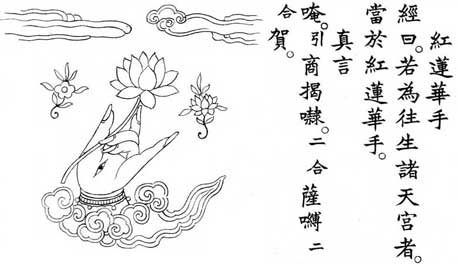 紅蓮華手
經曰。若為往生諸天宮者。
當於紅蓮華手。
真言
唵。引商揭㘑。二合薩嚩二
合賀。